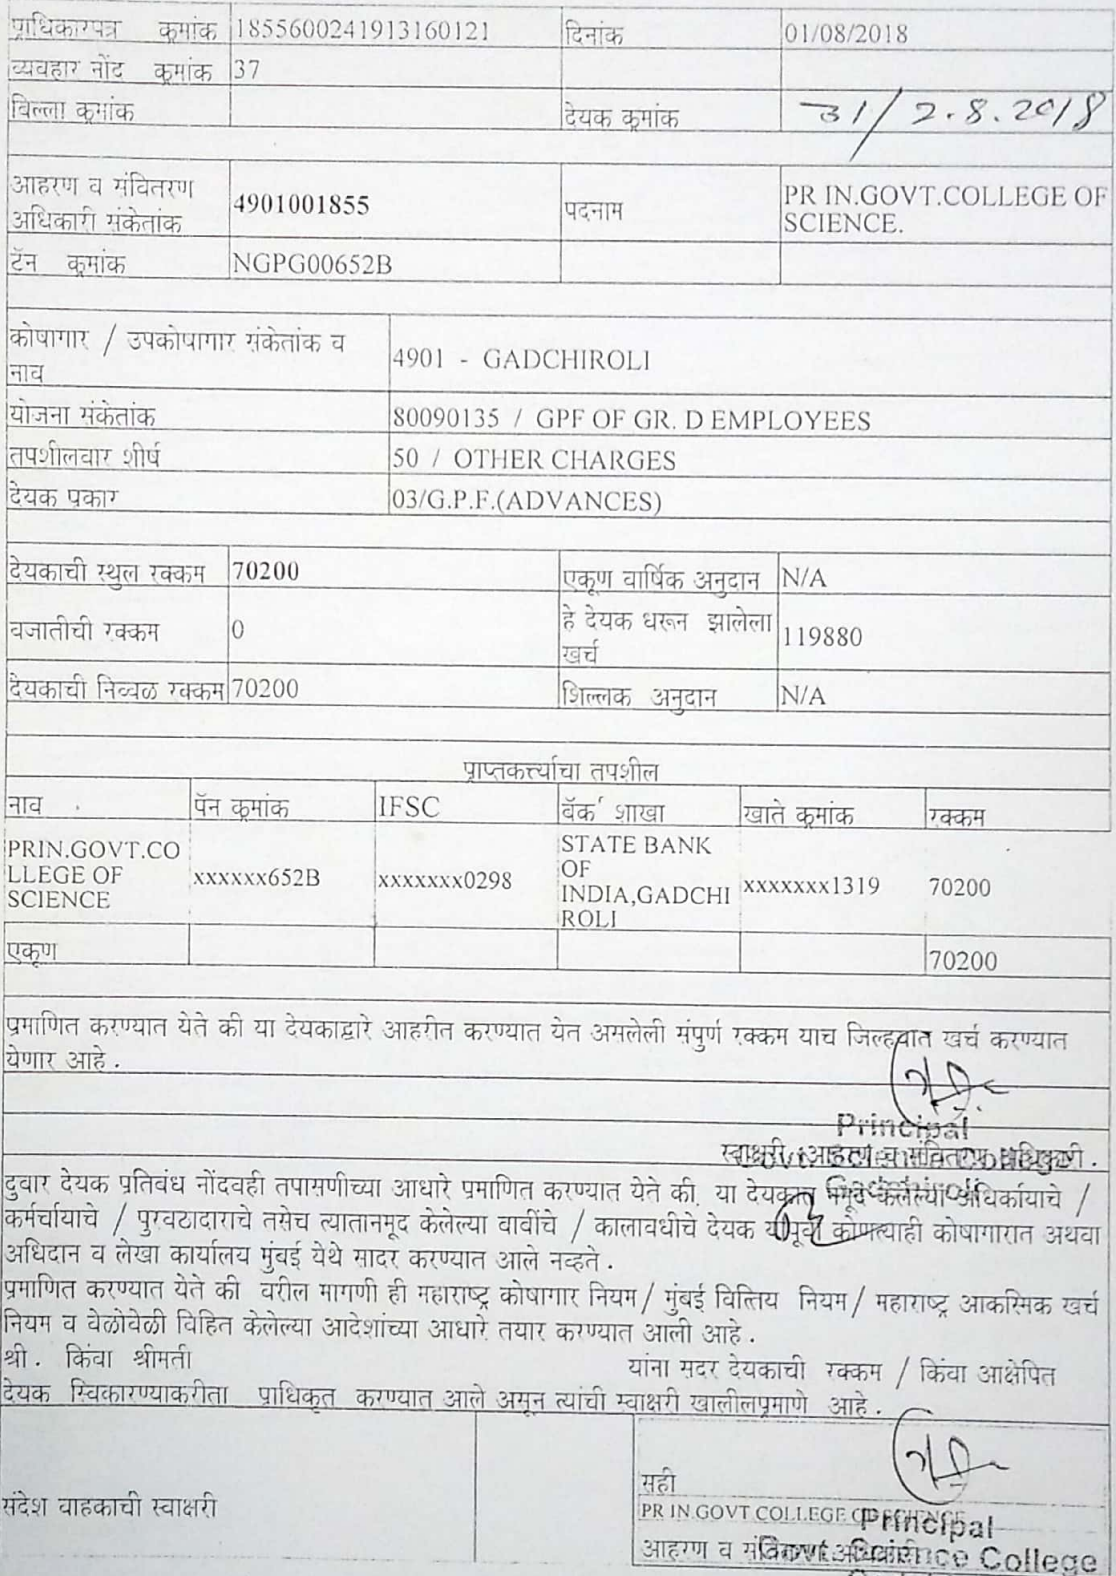 प्राधिकारपत्र क्रमांक 1855600241913160121 दिनांक 01/08/2018
व्यवहार नोंद क्रमांक 37
बिल्ला क्रमांक देयक क्रमांक 31/2.8.2018
आहरण व संवितरण
अधिकारी संकेतांक 4901001855 पदनाम PR IN.GOVT.COLLEGE OF
SCIENCE.
टॅन क्रमांक NGPG00652B
कोषागार / उपकोषागार संकेतांक व
नाव 4901 - GADCHIROLI
योजना संकेतांक 80090135 / GPF OF GR. D EMPLOYEES
तपशीलवार शीर्ष 50 / OTHER CHARGES
देयक प्रकार 03/G.P.F.(ADVANCES)
देयकाची स्थुल रक्कम 70200 एकूण वार्षिक अनुदान N/A
वजातीची रक्कम 0 हे देयक धरून झालेला
खर्च 119880
देयकाची निव्वळ रक्कम 70200 शिल्लक अनुदान N/A
प्राप्तकर्त्याचा तपशील
नाव पॅन क्रमांक IFSC बॅक शाखा खाते क्रमांक रक्कम
PRIN.GOVT.CO
LLEGE OF
SCIENCE xxxxxx652B xxxxxxx0298 STATE BANK
OF
INDIA,GADCHI
ROLI xxxxxxx1319 70200
एकूण 70200
प्रमाणित करण्यात येते की या देयकाद्वारे आहरीत करण्यात येत असलेली संपुर्ण रक्कम याच जिल्हयात खर्च करण्यात
येणार आहे .
Principal
स्वाक्षरी, आहरण व संवितरण अधिकारी .
दुवार देयक प्रतिबंध नोंदवही तपासणीच्या आधारे प्रमाणित करण्यात येते की. या देयकात नमूद केलेल्या अधिकार्याचे /
कर्मचार्याचे / पुरवठादाराचे तसेच त्यातानमूद केलेल्या बाबींचे / कालावधीचे देयक यापूर्वी कोणत्याही कोषागारात अथवा
अधिदान व लेखा कार्यालय मुंबई येथे सादर करण्यात आले नव्हते .
प्रमाणित करण्यात येते की वरील मागणी ही महाराष्ट्र कोषागार नियम / मुंबई वित्तिय नियम / महाराष्ट्र आकस्मिक खर्च
नियम व वेळोवेळी विहित केलेल्या आदेशांच्या आधारे तयार करण्यात आली आहे .
श्री . किंवा श्रीमती यांना सदर देयकाची रक्कम / किंवा आक्षेपित
देयक स्विकारण्याकरीता प्राधिकृत करण्यात आले असून त्यांची स्वाक्षरी खालीलप्रमाणे आहे .
संदेश वाहकाची स्वाक्षरी
सही
PR IN.GOVT COLLEGE OF SCIENCE
Principal
आहरण व संवितरण अधिकारी
Govt. Science College